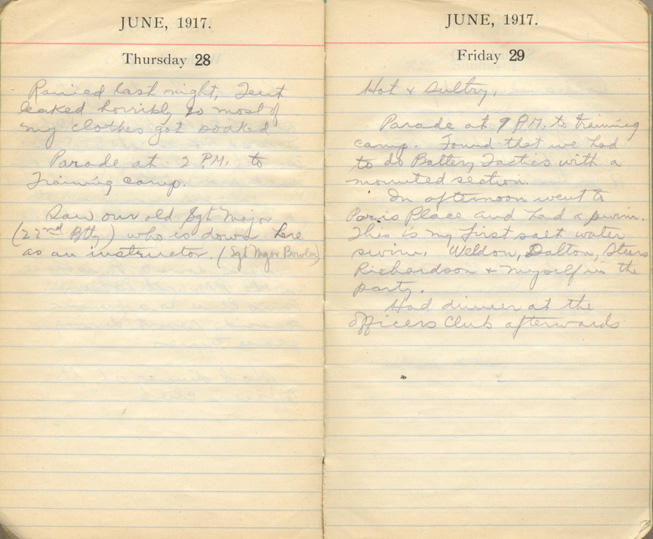 JUNE, 1917.
Thursday 28
Rained last night, Tent
leaked horribly so most of
my clothes got soaked
Parade at 2 P.M. to
Training camp.
Saw our old Sgt Major
(22nd Bty) who is down here
as an instructor. (Sgt Major
JUNE, 1917.
Friday 29
Hot & Sultry.
Parade at 9 P.M. to training
camp. Found that we had
to do Battery Tactics with a
mounted section.
In afternoon went to
Paris Place and had a swim.
This is my first salt water
swim. Weldon, Dalton,
Richardson & myself in the
party.
Had dinner at the
Officers Club afterwards